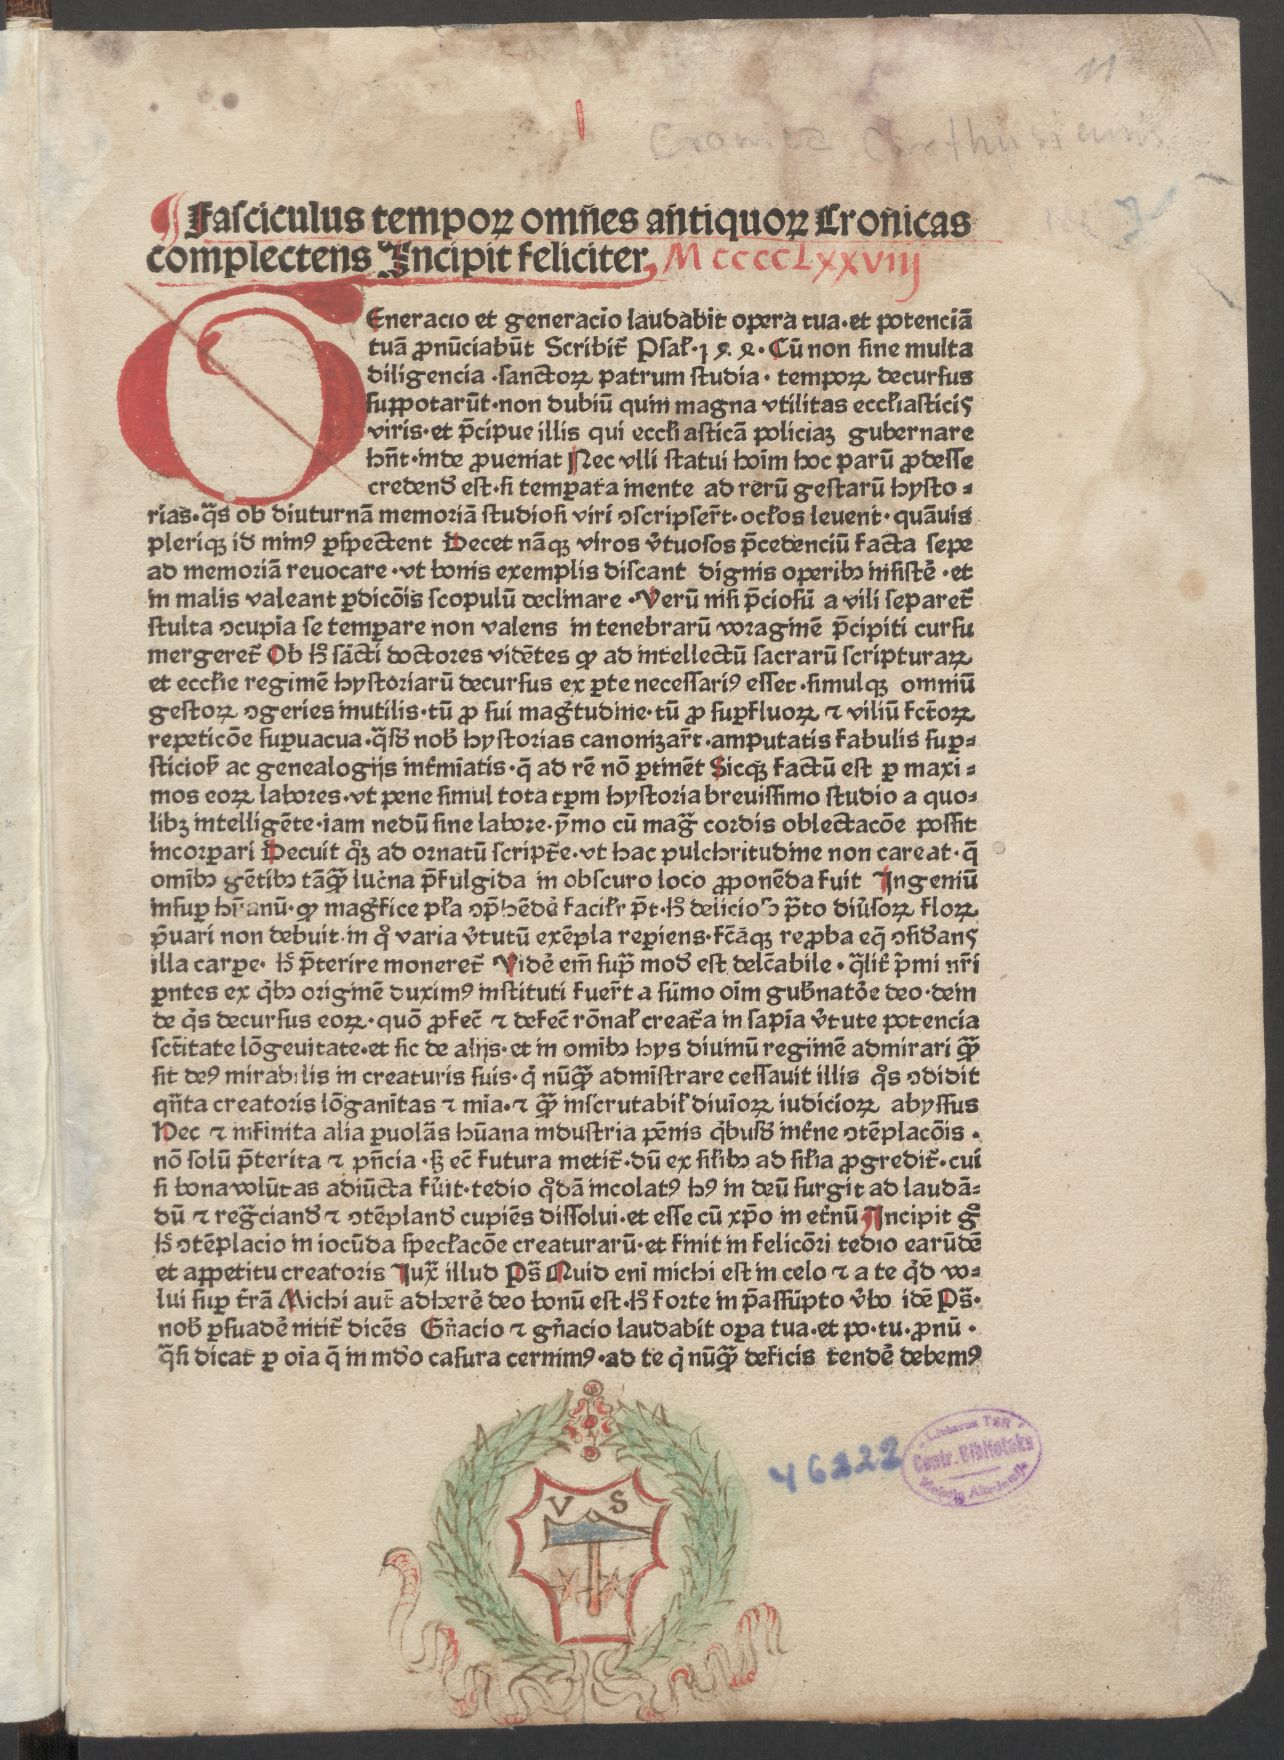 Cronica Carthusiensis
Fasciculus tempoꝝ omñes añtiquoꝝ Croñicas
complectens Incipit feliciter, MccccLxxviij
Eneracio et generacio laudabit opera tua·et potenciā
tuā ꝓnūciabūt Scribit᷑ Psal̛·144·Cū non sine multa
diligencia ·sanctoꝝ patrum studia· tempoꝝ decursus
suppotarūt·non dubiū quin magna vtilitas eccl̓iasticis
viris·et p̄cipue illis qui eccl̓iasticā policiaꝫ gubernare
hn̄t·inde ꝓueniat Nec vlli statui hoīm hoc parū ꝓdesse
credend̓ est·si temꝑata mente ad rerū gestarū hysto⸗
rias·q̄s ob diuturnā memoriā studiosi viri ↄscripser̄t·ocl̓os leuent·quāuis
pleriqꝫ id minꝰ ꝑspectent Decet nāqꝫ viros v̓tuosos p̄cedenciū facta sepe
ad memoriā reuocare·vt bonis exemplis discant dignis operibꝫ insistē·et
in malis valeant ꝑdicōis scopulū declinare·Verū nisi p̄ciosū a vili separet᷑
stulta ↄcupia se temꝑare non valens in tenebrarū voragine p̄cipiti cursu
mergeret᷑ Ob h̓ sācti doctores vidētes ꝙ ad intellectū sacrarū scripturaꝝ
et eccl̓ie regimē hystoriarū decursus ex ꝑte necessariꝰ esset·simulqꝫ omniū
gestoꝝ ↄgeries inutilis·tū ꝓ sui mag̓tudine·tū ꝓ suꝑfluoꝝ ⁊ viliū fc̄toꝝ
repeticōe suꝑuacua·q̄sd̓ nob̓ hystorias canonizar̄t·amputatis fabulis suꝑ⸗
sticios̓ ac genealogijs int̓miatis·q̄ ad rē nō ꝑtinēt Sicqꝫ factū est ꝑ maxi⸗
mos eoꝝ labores·vt pene simul tota tꝑm hystoria breuissimo studio a quo⸗
libꝫ intelligēte·iam nedū sine labore·ȳmo cū maḡ cordis oblectacōe possit
incorꝑari Decuit q̊ꝫ ad ornatū script̄e·vt hac pulchritudine non careat·q̄
omībꝫ gētibꝫ tāꝙ̄ luc̓na p̄fulgida in obscuro loco ꝓponēda fuit Ingeniū
illa carpe· h̓ p̄terire moneret᷑ Vidē em̄ sup̄ mod̓ est delc̄abile·q̄lit̓ p̄mi nr̄i
ꝑntes ex q̓bꝫ originē duximꝰ instituti fuer̄t a sūmo oīm gub̓natōe deo·dein
de q̓s decursus eoꝝ·quō ꝓfec̄ ⁊ defec̄ rōnal̓ creat̄a in sapīa v̓tute potencia
sct̄itate lōgeuitate·et sic de alijs·et in omībꝫ hys diuinū regimē admirari ꝙ̄
sit deꝰ mirabilis in creaturis suis·q̓ nūꝙ̄ admistrare cessauit illis q̊s ↄdidit
qn̄ta creatoris lōganītas ⁊ mīa·⁊ ꝙ̄ inscrutabil̓ diuīoꝝ iudicioꝝ abyssus
Hec ⁊ infinita alia ꝑuolās hūana industria pēnis q̓busd̓ int̓ne ↄtēplacōis·
nō solū p̄terita ⁊ pn̄cia·ꝫ ec̄ futura metit᷑·dū ex sil̓ibꝫ ad sil̓ia ꝓgredit᷑·cui
si bona volūtas adiūcta fu̓it·tedio q̊dā incolatꝰ hꝰ in deū surgit ad laudā⸗
dū ⁊ reg̓ciand̓ ⁊ ↄtēpland̓ cupiēs dissolui·et esse cū xp̄o in et̓nū Incipit g̊
h̓ ↄtēplacio in iocūda specl̓acōe creaturarū·et finit in felicōri tedio earūdē
et appetitu creatoris Iux̄ illud Ps̄ Quid eni michi est in celo ⁊ a te q̓d vo⸗
lui suꝑ t̓rā Michi aut̄ adherē deo bonū est·h̓ forte in p̄assūpto v̓bo idē Ps̄·
nob̓ ꝑsuadē nitit᷑ dicēs Gn̄acio ⁊ gn̄acio laudabit oꝑa tua·et po·tu·ꝓnū·
q̄si dicat ꝑ oīa q̄ in mūdo casura cernimꝰ·ad te q̓ nūꝙ̄ deficis tendē debemꝰ
V S
46222
Centr. Biblioteka